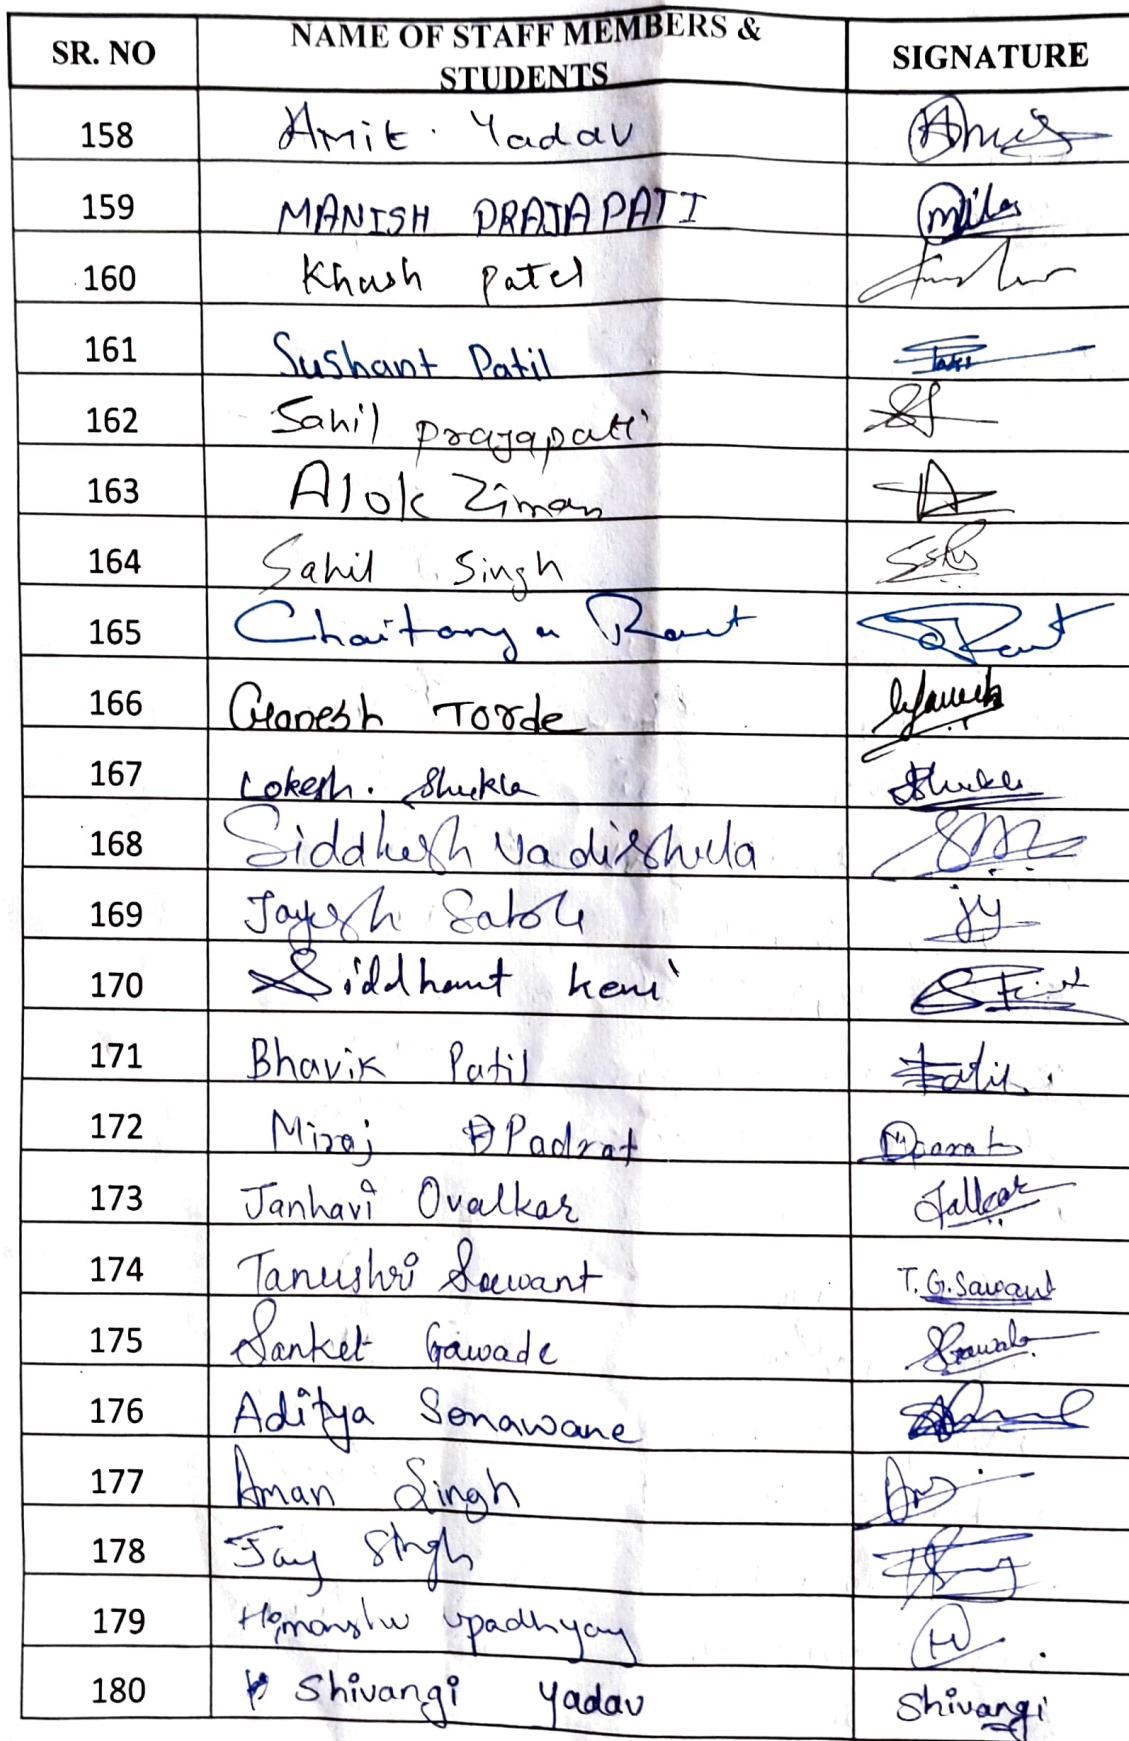 SR. NO NAME OF STAFF MEMBERS & STUDENTS SIGNATURE
158 Amit. Yadav
159 MANISH PRAJAPATI
160 Khush Patel
161 Sushant Patil
162 Sahil Prajapati
163 Alok Ziman
164 Sahil Singh
165 Chaitanya Raut Raut
166 Ganesh Torde Ganesh
167 Lokesh. Shukla Shukla
168 Siddhesh
169 Jayesh jy
170 Siddhant Keni
171 Bhavik Patil Patil
172 Miraj Padrat
173 Janhavi Ovalkar
174 Tanushri Sawant T.G.Sawant
175 Sanket Gawade
176 Aditya Sonawane
177 Aman Singh
178 Jay Singh
179 Himanshu Upadhyay
180 Shivangi Yadav Shivangi